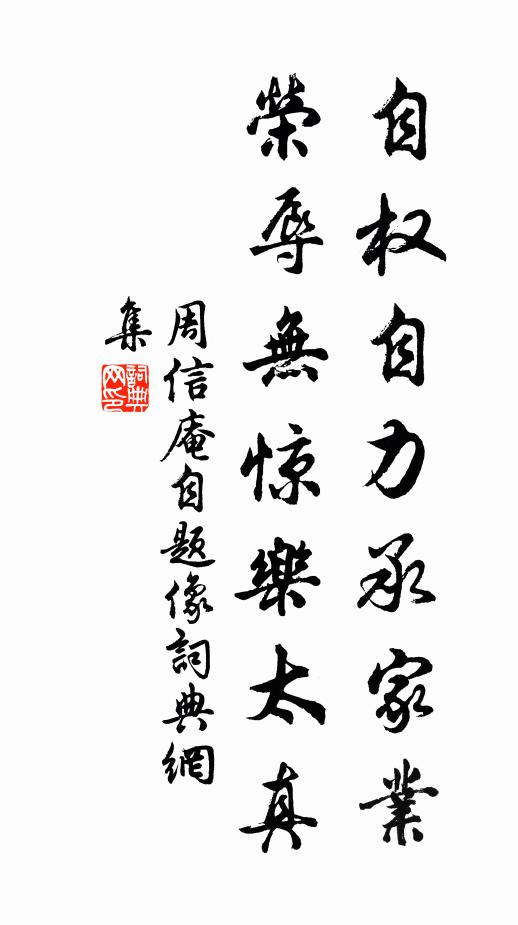 自权自力承家業
榮辱無惊樂太真
周信庵自题像詞典網
集
詞典
网印